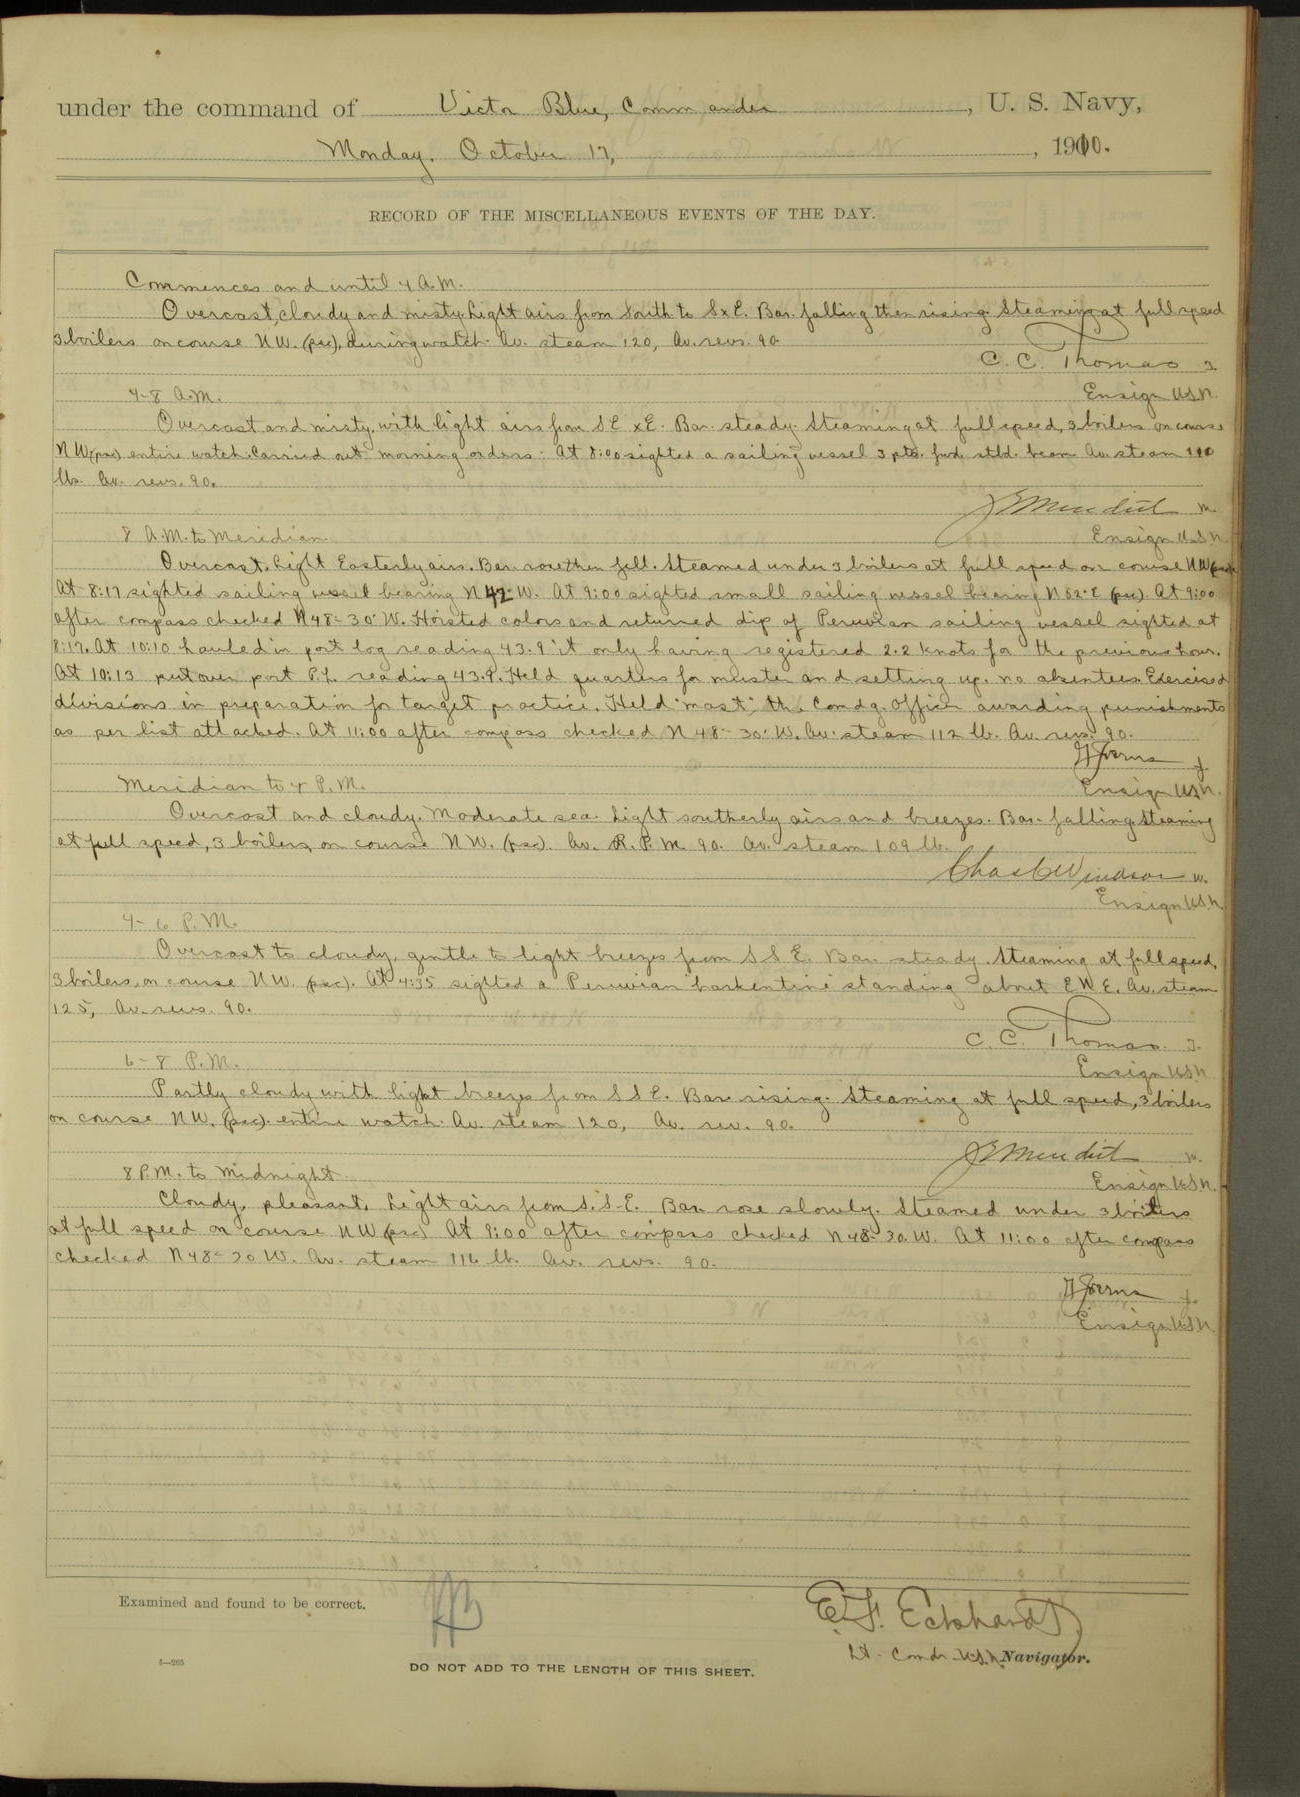 under the command of Victor Blue, Commander, U. S. Navy,
Monday, October 17, 1910.
RECORD OF THE MISCELLANEOUS EVENTS OF THE DAY.
Commences and until 4 A.M.
Overcast, cloudy and misty. Light airs from South to SxE. Bar. falling then rising. Steaming at full speed
3 boilers on course NW. (psc), during watch. Av. steam 120, Av. revs. 90
C. C. Thomas T.
Ensign U.S.N.
4-8 A.M.
Overcast and misty, with light airs from SExE. Bar. steady. Steaming at full speed, 3 boilers on course
NW(psc) entire watch. Carried out morning orders. At 8:00 sighted a sailing vessel 3 pts. fwd. stbd. beam Av. steam 110
lbs. Av. revs. 90.
M.
Ensign U.S.N.
8 A.M. to Meridian
Overcast. Light Easterly airs. Bar. rose then fell. Steamed under 3 boilers at full speed on course NW (psc)
At 8:17 sighted sailing vessel bearing N 42 W. At 9:00 sighted small sailing vessel bearing N 82° E (psc). At 9:00
after compass checked N 48°-30' W. Hoisted colors and returned dip of Peruvian sailing vessel sighted at
8:17. At 10:10 hauled in port log reading 43.9 it only having registered 2.2 knots for the previous hour.
At 10:13 put over port P.L. reading 43.9. Held quarters for muster and setting up. no absentees. Exercised
divisions in preparation for target practice. Held "mast", the Comdg. Officer awarding punishments
as per list attached. At 11:00 after compass checked N 48°-30' W. Av. steam 112 lb. Av. revs. 90.
Ensign U.S.N.
Meridian to 4 P.M.
Overcast and cloudy. Moderate sea. Light southerly airs and breezes. Bar. falling. Steaming
at full speed, 3 boilers, on course NW. (psc). Av. R.P.M. 90. Av. steam 109 lb.
Chas C Windsor W.
Ensign U.S.N.
4-6 P.M.
Overcast to cloudy, gentle to light breezes from SSE. Bar. steady. Steaming at full speed,
3 boilers, on course NW. (psc). At 4:35 sighted a Peruvian barkentine standing about Av. steam
125, Av. revs. 90.
C. C. Thomas. T.
Ensign U.S.N.
6-8 P.M.
Partly cloudy with light breezes from SSE. Bar. rising. Steaming at full speed, 3 boilers
on course NW. (psc). entire watch. Av. steam 120, Av. rev. 90.
M.
Ensign U.S.N.
8 P.M. to Midnight
Cloudy, pleasant, Light airs from S.S.E. Bar. rose slowly. Steamed under 3 boilers
at full speed on course NW (psc) At 9:00 after compass checked N 48°-30 W. At 11:00 after compass
checked N 48°-30 W. Av. steam 116 lb. Av. revs. 90.
Ensign U.S.N.
Examined and found to be correct.
E. F. Eckhardt
Lt. Comdr. U.S.N. Navigator.
6—265
DO NOT ADD TO THE LENGTH OF THIS SHEET.